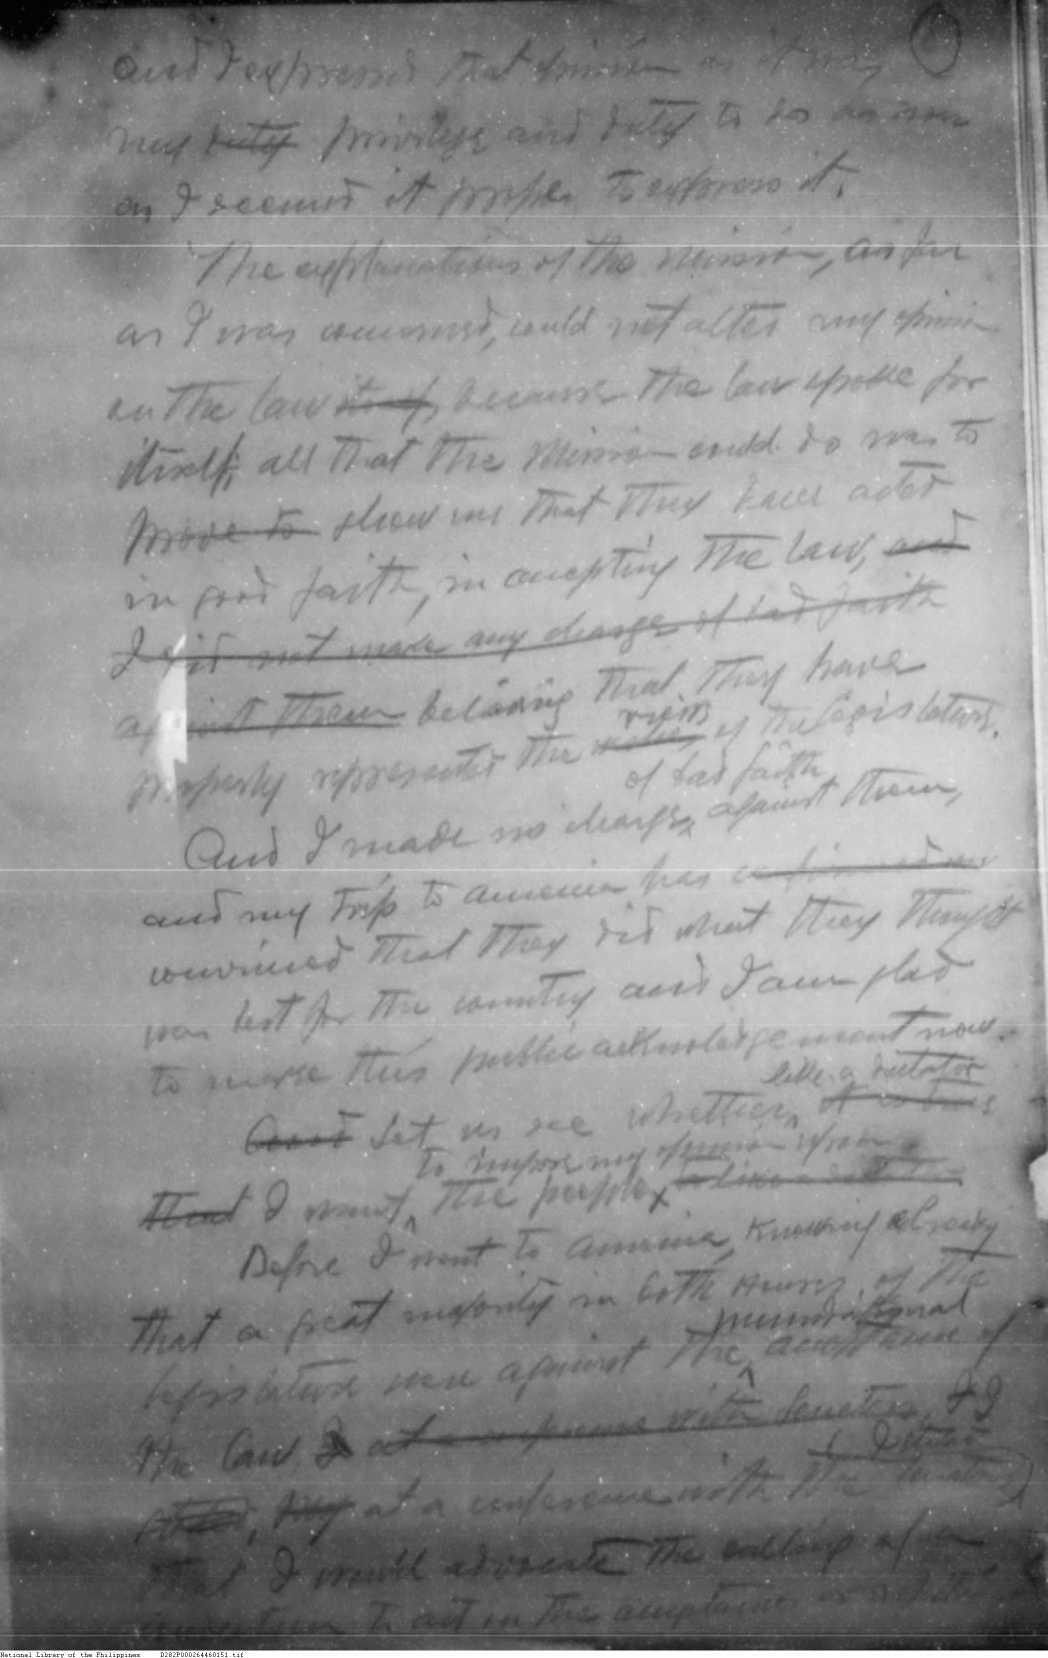 and I expressed that opinion as it was
my duty privilege and duty to do as soon
as I deemed it proper to express it.
The explanations of the Mission, as far
as I was concerned, could not alter my opinion
on the law itself, because the law spoke for
itself; all that the Mission could do was to
prove to show me that they have acted
in good faith, in accepting the law, and
I did not make any charge of bad faith
against them believing that they have
views
properly represented the of the Legislature.
of bad faith
And I made no charge against them,
and my trip to America has confirmed me
convinced that they did what they thought
was best for the country and I am glad
to make this public acknowledgement now.
like a dictator
And Let us see whether it is true
to impose my opinion upon
that I want the people like a dictator
Before I went to America, knowing already
that a great majority in both Houses of the
unconditional
Legislature were against the acceptance of
the law, I at a conference with Senators, I
I stated
at a conference with the Senators
that I would advocate the calling of a
convention to act on the acceptance or